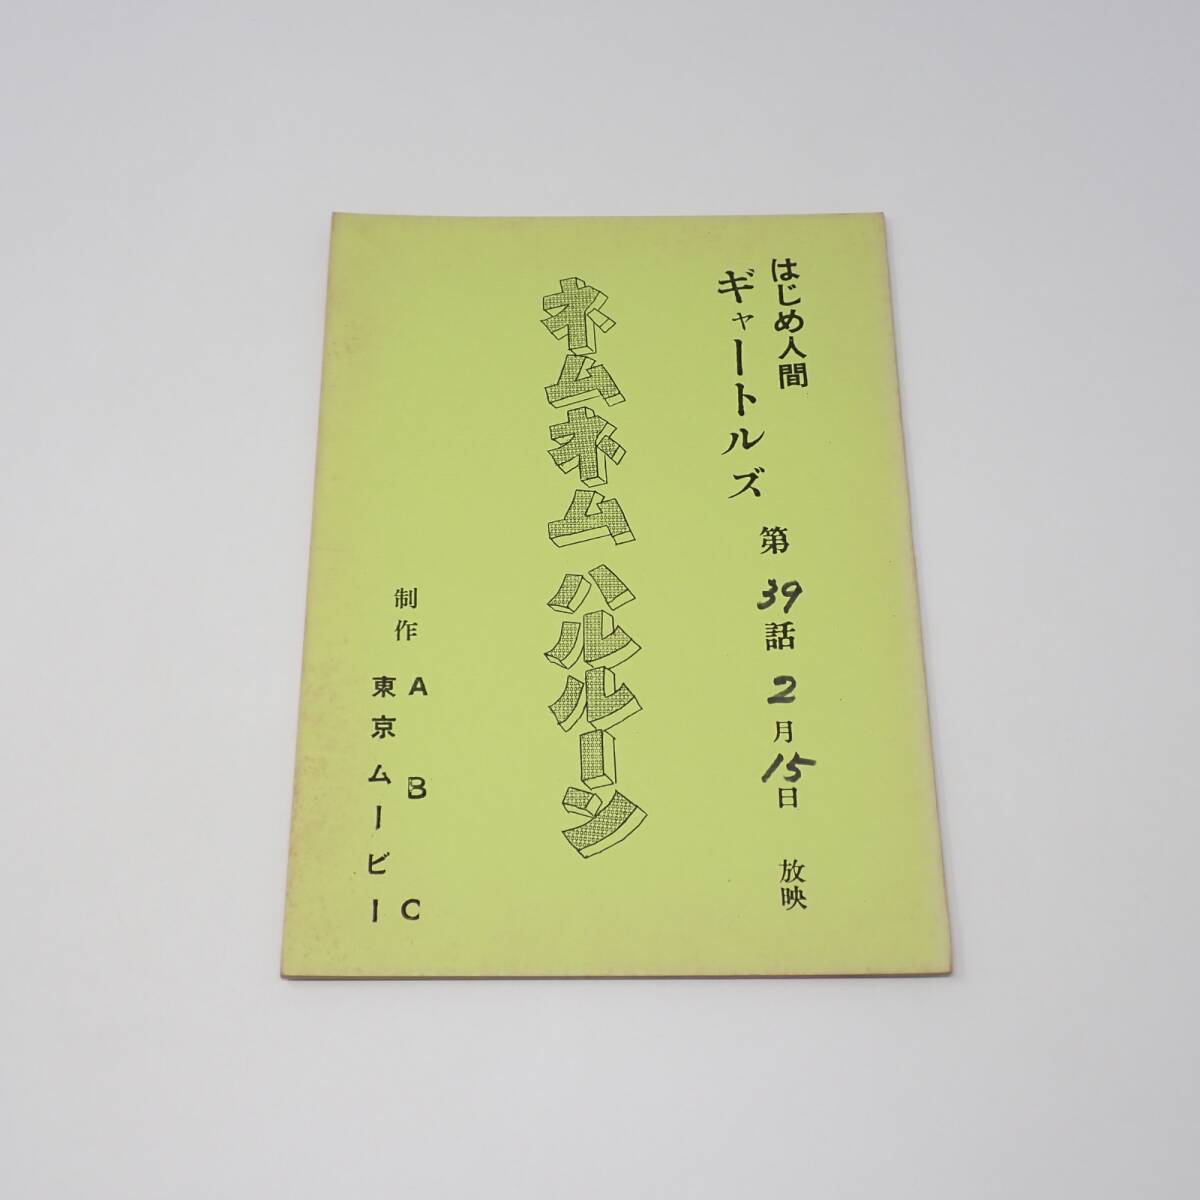 はじめ人間
ギャートルズ
第39話 2月15日 放映
ネムネムハルルーン
制作 ABC
東京ムービー